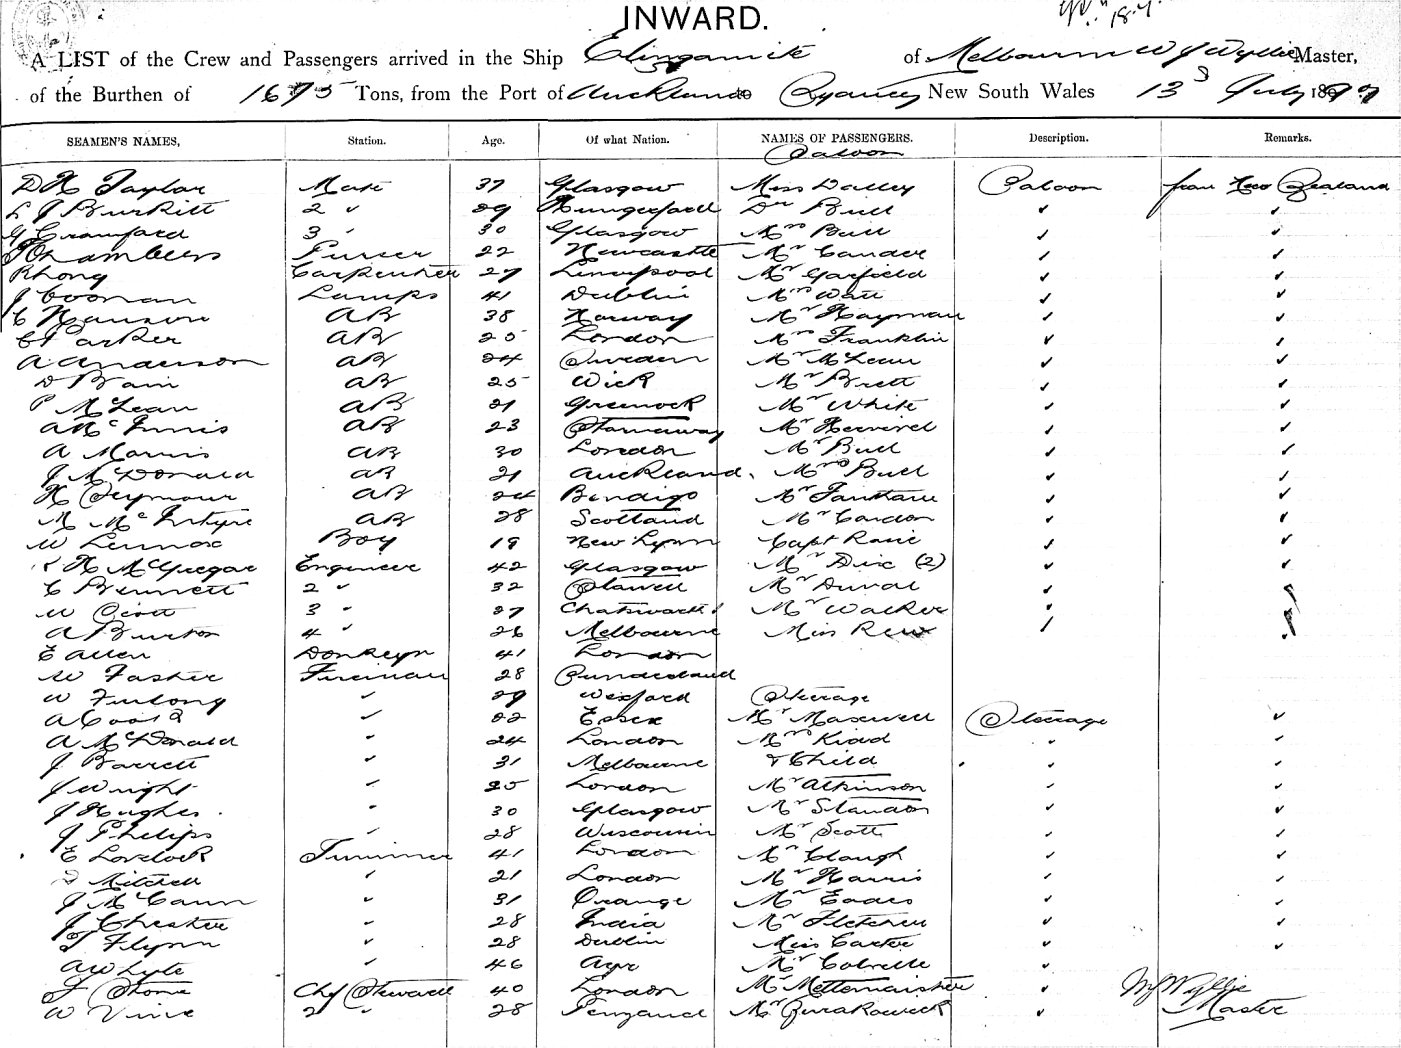 INWARD.
A LIST of the Crew and Passengers arrived in the Ship Elingamite of Melbourne W J Wyllie Master,
of the Burthen of 1675 Tons, from the Port of Auckland to Sydney New South Wales 13 July 1897
SEAMEN'S NAMES, Station. Age. Of what Nation. NAMES OF PASSENGERS. Description. Remarks.
Saloon
D K Taylor Mate 37 Glasgow Miss Dalley Saloon from New Zealand
L J Burkitt 2 " 29 Hungerford Dr Bull " "
G Crawford 3 " 30 Glasgow Mrs Bull " "
Chambers Purser 22 Newcastle Mr Cander " "
R Hong Carpenter 27 Liverpool Mr Garfield " "
J Coonan Lamps 41 Dublin Mrs Watt " "
C Hanson AB 38 Norway Mr Hayman " "
Parker AB 25 London Mrs Franklin " "
A Anderson AB 24 Sweden Mr McLean " "
D Bain AB 25 Wick Mr Brett " "
P McLean AB 21 Greenock Mr White " "
A McInnis AB 23 Stornaway Mr " "
A Morris AB 30 London Mr Bull " "
J McDonald AB 21 Auckland. Mrs Bull " "
H Seymour AB 24 Bendigo Mr " "
M McIntyre AB 28 Scotland Mr Cardon " "
W Lennox Boy 19 New Lynn Capt " "
H McGregor Engineer 42 Glasgow Mr Dix (2) " "
C Bennett 2 " 32 Stawell Mr Duval " "
W Scott 3 " 27 Mr Walker " "
A Burton 4 " 26 Melbourne Miss Rew " "
E Allen Donkeyn 41 London
W Foster Fireman 28 Sunderland
W Furlong " 29 Wexford Steerage
A " 22 Essex Mr Maxwell Steerage "
A McDonald " 24 London Mrs Kidd " "
J Barrett " 31 Melbourne & Child " "
J Wright " 25 London Mr Atkinson " "
J Hughes " 30 Glasgow Mr Standon " "
J Phelips " 28 Wisconsin Mr Scott " "
E Lovelock Trimmer 41 London Mr Clough " "
Mitchell " 21 London Mr Harris " "
J McCann " 31 Orange Mr Eades " "
J Chester " 28 India Mr Fletcher " "
T Flynn " 28 Dublin Miss Carter " "
A Whyte " 46 Ayr Mr "
F Stone Chf Steward 40 London Mr "
W Vine 2 " 28 Penzance Mr "
W J Wyllie
Master